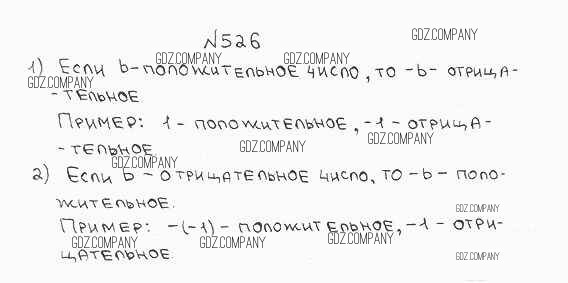 №526
GDZ.COMPANY
GDZ.COMPANY GDZ.COMPANY
1) Если b-положительное число, то -b- отрица-
GDZ.COMPANY
-тельное
Пример: 1 - положительное, -1 - отрица-
GDZ.COMPANY
-тельное.
GDZ.COMPANY
GDZ.COMPANY
2) Если b - отрицательное число, то -b - поло-
жительное.
GDZ.COMPANY
Пример: -(-1) - положительное, -1 - отри-
GDZ.COMPANY GDZ.COMPANY GDZ.COMPANY
цательное.
GDZ.COMPANY